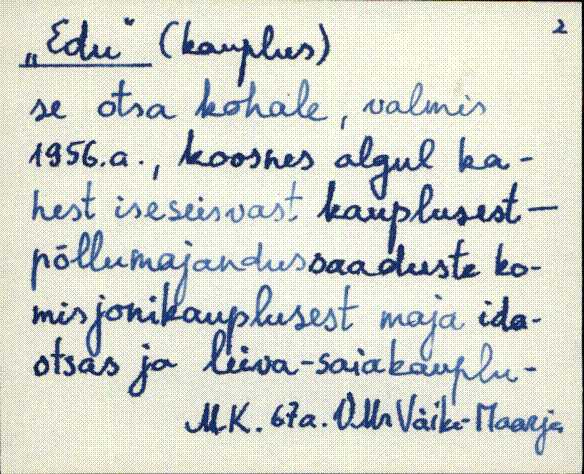 2
„Edu“ (kauplus)
se otsa kohale, valmis
1956.a., koosnes algul ka-
hest iseseisvast kauplusest —
põllumajandussaaduste ko-
misjonikauplusest maja ida-
otsas ja leiva-saiakauplu-
M.K. 67a. Väike-Maarja